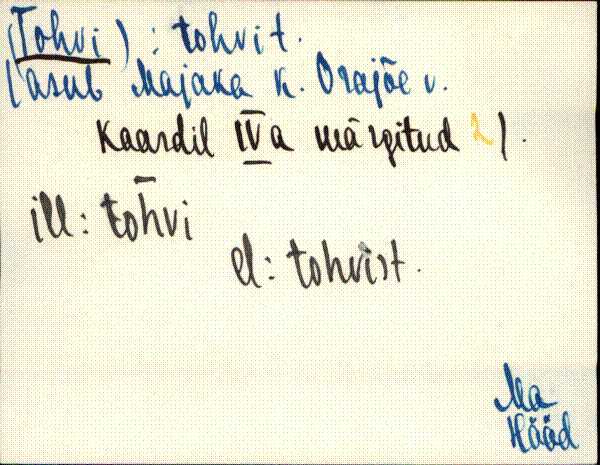 (Tohvi) : tohvit.
(asub Majaka k. Orajõe v.
Kaardil IVa märgitud 2).
ill: tōhvi
el: tohvist.
Ma
Hääd